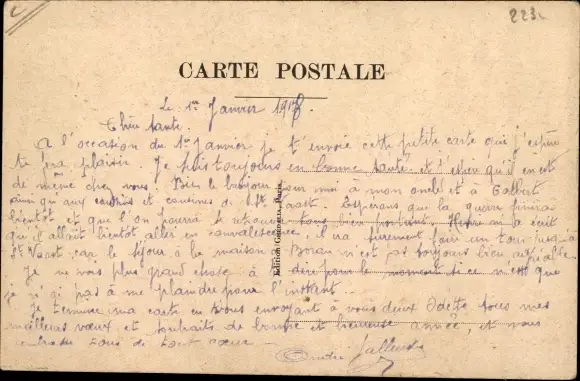 223.
CARTE POSTALE
Le 1er Janvier 1918.
Chère tante.
A l'occasion du 1er Janvier je t'envoie cette petite carte qui j'espère
te fra plaisir. Je suis toujours en bonne santé et j'espère qu'il en est
de même chez vous. Bien le bonjour pour moi à mon oncle et à
ainsi qu'aux cousins et cousines de St Vaast. Espérons que la guerre finira
bientôt et que l'on pourra se retrouver tous bien portant. Henri m'a écrit
qu'il allait bientôt aller en convalescence. Il ira surement faire un tour jusqu'à
St Vaast car le séjour à la maison n'est pas toujours bien
Je ne vois plus grand chose à dire pour le moment si ce n'est que
je n'ai pas à me plaindre pour l'instant.
Je termine ma carte en vous envoyant à vous deux Odette tous mes
meilleurs vœux et souhaits de bonne et heureuse année, et vous
embrasse tous de tout cœur
Edition Paris